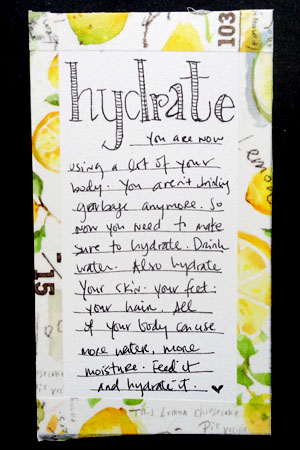 103
hydrate
you are now
using a lot of your
body. You aren't drinking
garbage anymore. So
now you need to make
sure to hydrate. Drink
water. Also hydrate
your skin. your feet.
your hair. All
of your body can use
more water, more
moisture. Feed it
and hydrate it. ♥
15
This Lemon Cheesecake
Pie